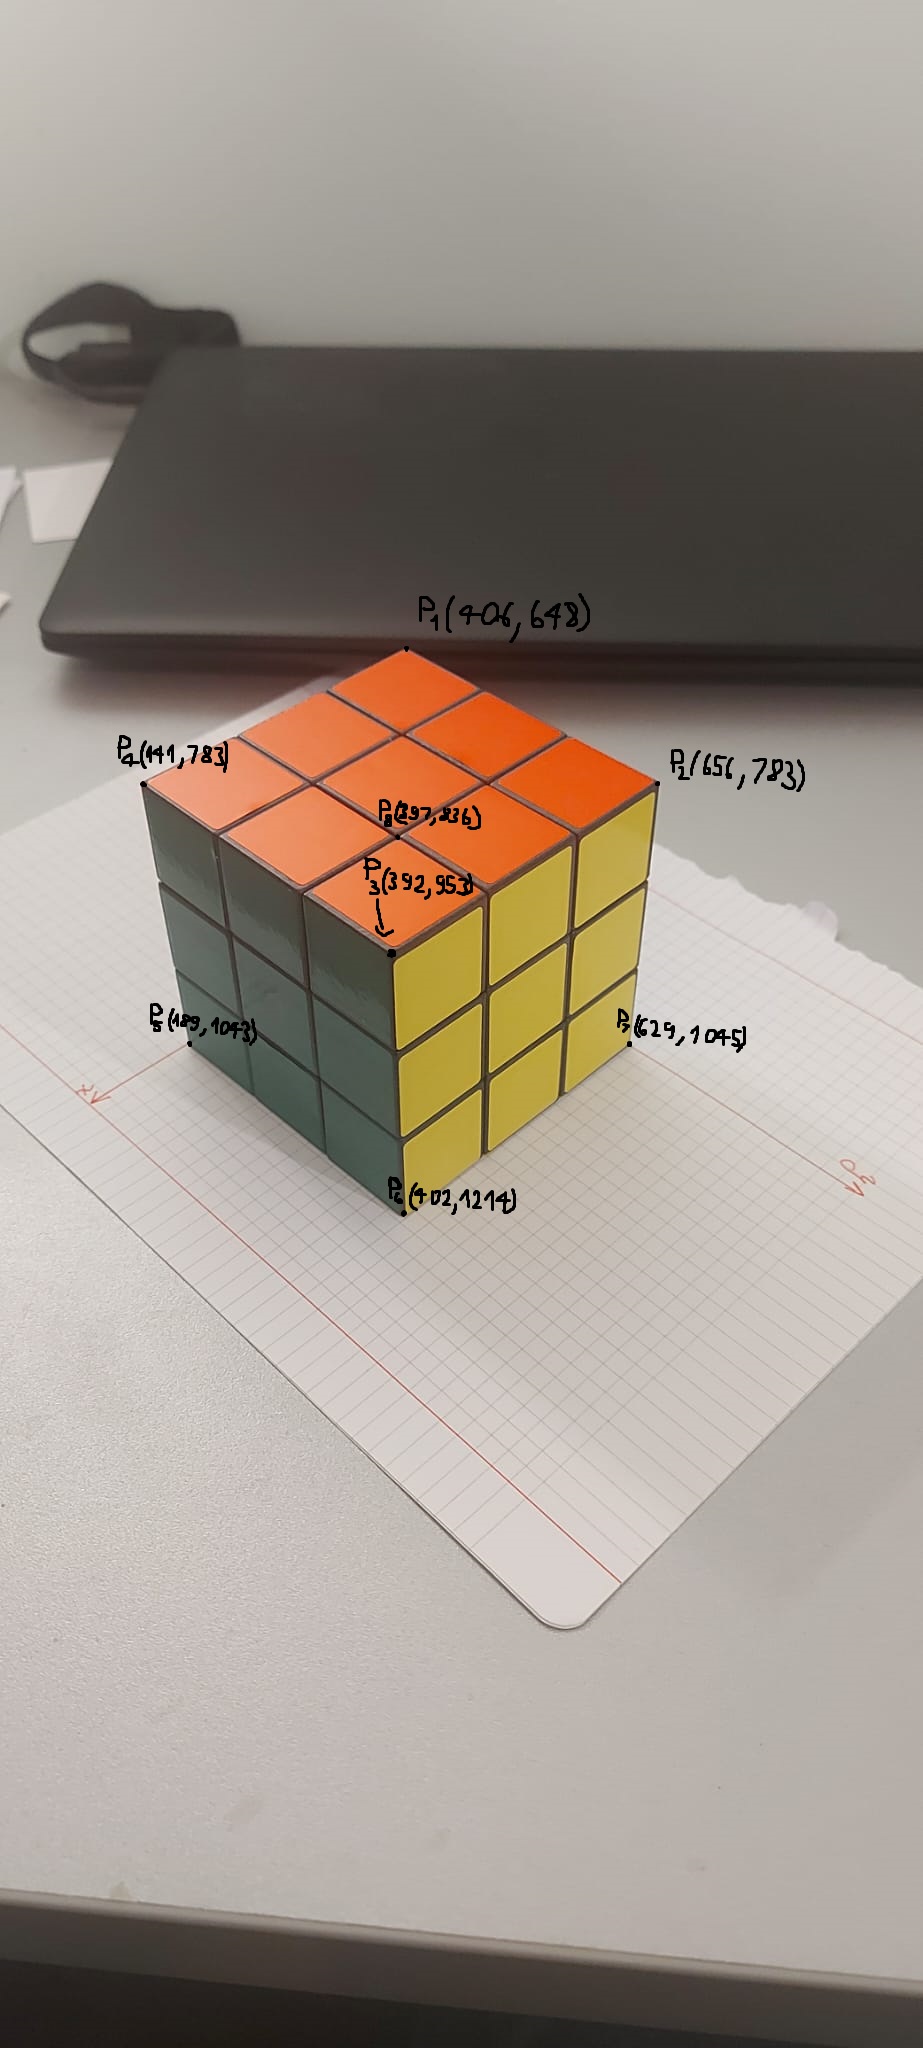 P1(406,648)
P4(141,783)
P2(656,783)
P8(397,836)
P3(392,953)
P5(189,1043)
P7(629,1045)
x
y
P6(402,1214)